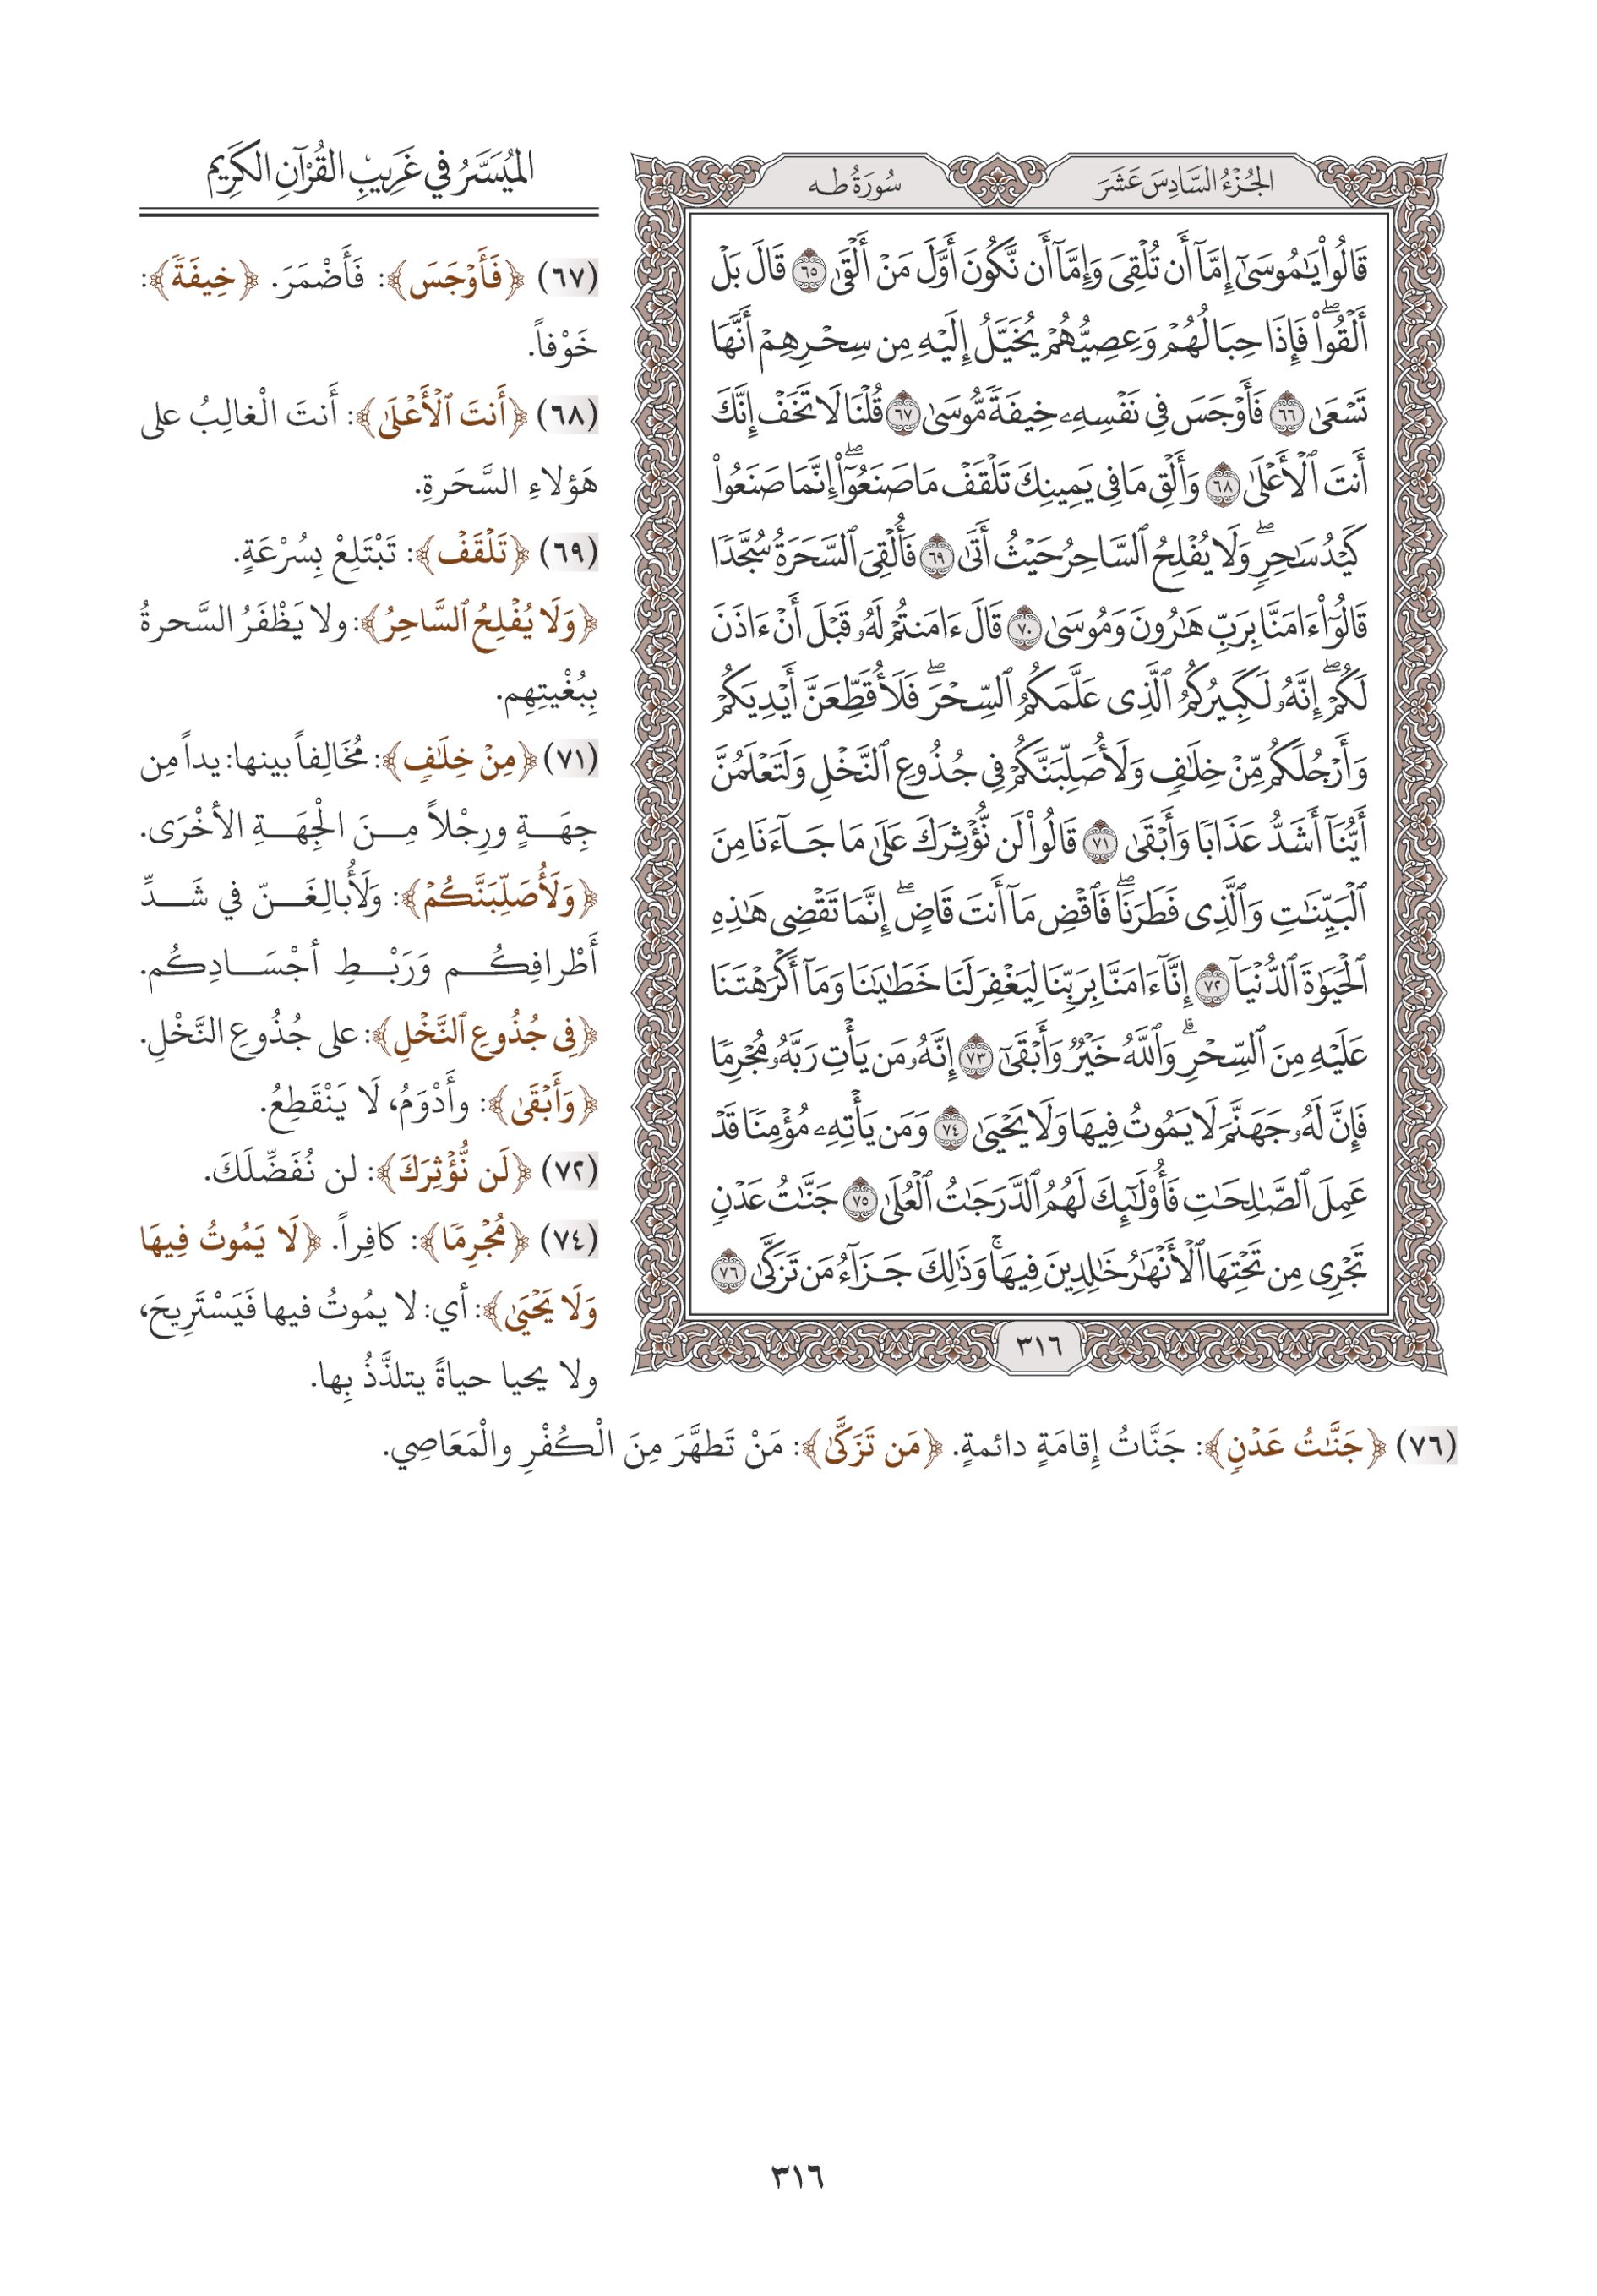 الجُزْءُ السَّادِسَ عَشَرَ
سُورَةُ طه
قَالُوا۟ يَٰمُوسَىٰٓ إِمَّآ أَن تُلْقِىَ وَإِمَّآ أَن نَّكُونَ أَوَّلَ مَنْ أَلْقَىٰ ٦٥ قَالَ بَلْ
أَلْقُوا۟ۖ فَإِذَا حِبَالُهُمْ وَعِصِيُّهُمْ يُخَيَّلُ إِلَيْهِ مِن سِحْرِهِمْ أَنَّهَا
تَسْعَىٰ ٦٦ فَأَوْجَسَ فِى نَفْسِهِۦ خِيفَةً مُّوسَىٰ ٦٧ قُلْنَا لَا تَخَفْ إِنَّكَ
أَنتَ ٱلْأَعْلَىٰ ٦٨ وَأَلْقِ مَا فِى يَمِينِكَ تَلْقَفْ مَا صَنَعُوٓا۟ۖ إِنَّمَا صَنَعُوا۟
كَيْدُ سَٰحِرٍۖ وَلَا يُفْلِحُ ٱلسَّاحِرُ حَيْثُ أَتَىٰ ٦٩ فَأُلْقِىَ ٱلسَّحَرَةُ سُجَّدًا
قَالُوٓا۟ ءَامَنَّا بِرَبِّ هَٰرُونَ وَمُوسَىٰ ٧٠ قَالَ ءَامَنتُمْ لَهُۥ قَبْلَ أَنْ ءَاذَنَ
لَكُمْۖ إِنَّهُۥ لَكَبِيرُكُمُ ٱلَّذِى عَلَّمَكُمُ ٱلسِّحْرَۖ فَلَأُقَطِّعَنَّ أَيْدِيَكُمْ
وَأَرْجُلَكُم مِّنْ خِلَٰفٍ وَلَأُصَلِّبَنَّكُمْ فِى جُذُوعِ ٱلنَّخْلِ وَلَتَعْلَمُنَّ
أَيُّنَآ أَشَدُّ عَذَابًا وَأَبْقَىٰ ٧١ قَالُوا۟ لَن نُّؤْثِرَكَ عَلَىٰ مَا جَآءَنَا مِنَ
ٱلْبَيِّنَٰتِ وَٱلَّذِى فَطَرَنَاۖ فَٱقْضِ مَآ أَنتَ قَاضٍۖ إِنَّمَا تَقْضِى هَٰذِهِ
ٱلْحَيَوٰةَ ٱلدُّنْيَآ ٧٢ إِنَّآ ءَامَنَّا بِرَبِّنَا لِيَغْفِرَ لَنَا خَطَٰيَٰنَا وَمَآ أَكْرَهْتَنَا
عَلَيْهِ مِنَ ٱلسِّحْرِۗ وَٱللَّهُ خَيْرٌ وَأَبْقَىٰٓ ٧٣ إِنَّهُۥ مَن يَأْتِ رَبَّهُۥ مُجْرِمًا
فَإِنَّ لَهُۥ جَهَنَّمَ لَا يَمُوتُ فِيهَا وَلَا يَحْيَىٰ ٧٤ وَمَن يَأْتِهِۦ مُؤْمِنًا قَدْ
عَمِلَ ٱلصَّٰلِحَٰتِ فَأُو۟لَٰٓئِكَ لَهُمُ ٱلدَّرَجَٰتُ ٱلْعُلَىٰ ٧٥ جَنَّٰتُ عَدْنٍ
تَجْرِى مِن تَحْتِهَا ٱلْأَنْهَٰرُ خَٰلِدِينَ فِيهَاۚ وَذَٰلِكَ جَزَآءُ مَن تَزَكَّىٰ ٧٦
٣١٦
المُيَسَّرُ في غَرِيبِ القُرْآنِ الكَرِيمِ
(٦٧) ﴿فَأَوْجَسَ﴾: فَأَضْمَرَ. ﴿خِيفَةً﴾:
خَوْفاً.
(٦٨) ﴿أَنتَ ٱلْأَعْلَىٰ﴾: أَنتَ الْغالِبُ على
هَؤلاءِ السَّحَرةِ.
(٦٩) ﴿تَلْقَفْ﴾: تَبْتَلِعْ بِسُرْعَةٍ.
﴿وَلَا يُفْلِحُ ٱلسَّاحِرُ﴾: ولا يَظْفَرُ السَّحرةُ
بِبُغْيتِهِم.
(٧١) ﴿مِنْ خِلَٰفٍ﴾: مُخَالِفاً بينها: يداً مِن
جِهَةٍ ورِجْلاً مِنَ الْجِهَةِ الأخْرَى.
﴿وَلَأُصَلِّبَنَّكُمْ﴾: وَلَأُبالِغَنّ في شَدِّ
أَطْرافِكُم وَرَبْطِ أجْسَادِكُم.
﴿فِى جُذُوعِ ٱلنَّخْلِ﴾: على جُذُوعِ النَّخْلِ.
﴿وَأَبْقَىٰ﴾: وأَدْوَمُ، لَا يَنْقَطِعُ.
(٧٢) ﴿لَن نُّؤْثِرَكَ﴾: لن نُفَضِّلَكَ.
(٧٤) ﴿مُجْرِمًا﴾: كافِراً. ﴿لَا يَمُوتُ فِيهَا
وَلَا يَحْيَىٰ﴾: أي: لا يمُوتُ فيها فَيَسْتَرِيحَ،
ولا يحيا حياةً يتلذَّذُ بِها.
(٧٦) ﴿جَنَّٰتُ عَدْنٍ﴾: جَنَّاتُ إِقامَةٍ دائمةٍ. ﴿مَن تَزَكَّىٰ﴾: مَنْ تَطهَّرَ مِنَ الْكُفْرِ والْمَعَاصِي.
٣١٦